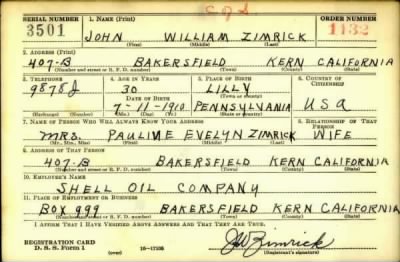 C91
SERIAL NUMBER 1. NAME (Print) ORDER NUMBER
3501 JOHN WILLIAM ZIMRICK 1132
(First) (Middle) (Last)
2. ADDRESS (Print)
407-B BAKERSFIELD KERN CALIFORNIA
(Number and street or R. F. D. number) (Town) (County) (State)
3. TELEPHONE 4. AGE IN YEARS 5. PLACE OF BIRTH 6. COUNTRY OF CITIZENSHIP
9878J 30 LILLY
DATE OF BIRTH (Town or county)
7-11-1910 PENNSYLVANIA USA
(Exchange) (Number) (Mo.) (Day) (Yr.) (State or country)
7. NAME OF PERSON WHO WILL ALWAYS KNOW YOUR ADDRESS 8. RELATIONSHIP OF THAT PERSON
MRS. PAULINE EVELYN ZIMRICK WIFE
(Mr., Mrs., Miss) (First) (Middle) (Last)
9. ADDRESS OF THAT PERSON
407-B BAKERSFIELD KERN CALIFORNIA
(Number and street or R. F. D. number) (Town) (County) (State)
10. EMPLOYER'S NAME
SHELL OIL COMPANY
11. PLACE OF EMPLOYMENT OR BUSINESS
BOX 999 BAKERSFIELD KERN CALIFORNIA
(Number and street or R. F. D. number) (Town) (County) (State)
I AFFIRM THAT I HAVE VERIFIED ABOVE ANSWERS AND THAT THEY ARE TRUE.
REGISTRATION CARD
D. S. S. Form 1 (over) 16-17105 JW Zimrick
(Registrant's signature)